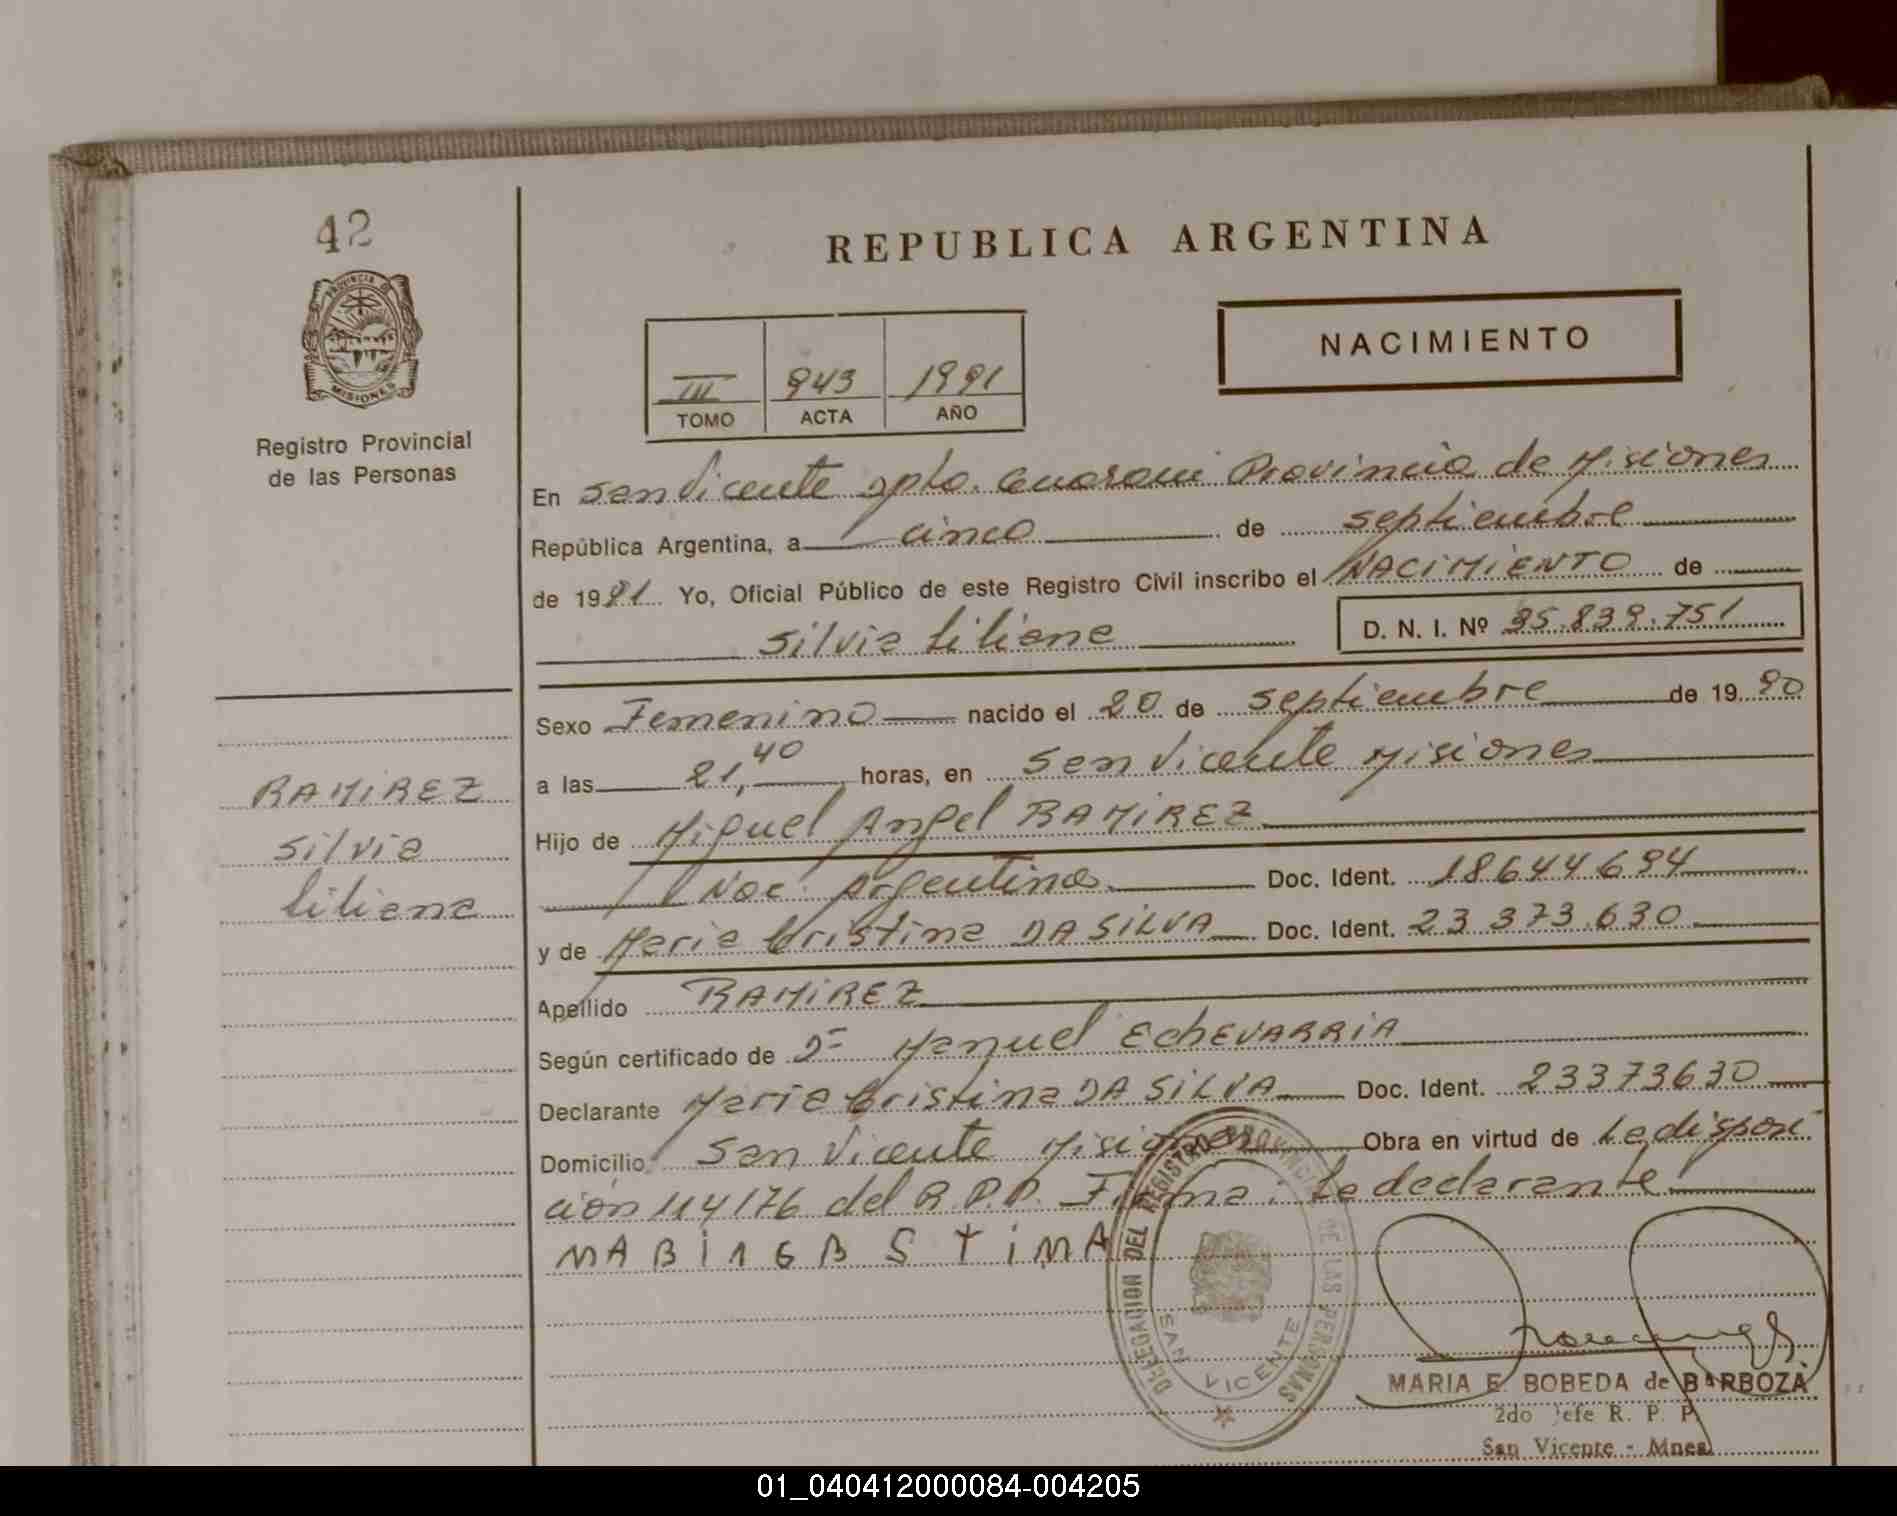 42
PROVINCIA DE
MISIONES
Registro Provincial
de las Personas
RAMIREZ
Silvia
Liliana
REPUBLICA ARGENTINA
NACIMIENTO
III 943 1991
TOMO ACTA AÑO
En San Vicente Dpto. Guarani Provincia de Misiones
República Argentina, a cinco de septiembre
de 1991 Yo, Oficial Público de este Registro Civil inscribo el NACIMIENTO de
Silvia Liliana D. N. I. Nº 35.839.751
Sexo Femenino nacido el 20 de septiembre de 1990
a las 21,40 horas, en San Vicente Misiones
Hijo de Miguel Angel RAMIREZ
Nac. Argentina Doc. Ident. 18644694
y de Maria Cristina DA SILVA Doc. Ident. 23 373.630
Apellido RAMIREZ
Según certificado de Dr Manuel EchEVARRIA
Declarante Maria Cristina DA SILVA Doc. Ident. 23373630
Domicilio San Vicente Misiones Obra en virtud de La disposi
ción 114/76 del R.P.P. Firma: La declarante
DELEGACION DEL REGISTRO PROVINCIAL DE LAS PERSONAS
SAN VICENTE
MARIA E. BOBEDA de BARBOZA
2do Jefe R. P. P.
San Vicente - Mnes.
01_040412000084-004205